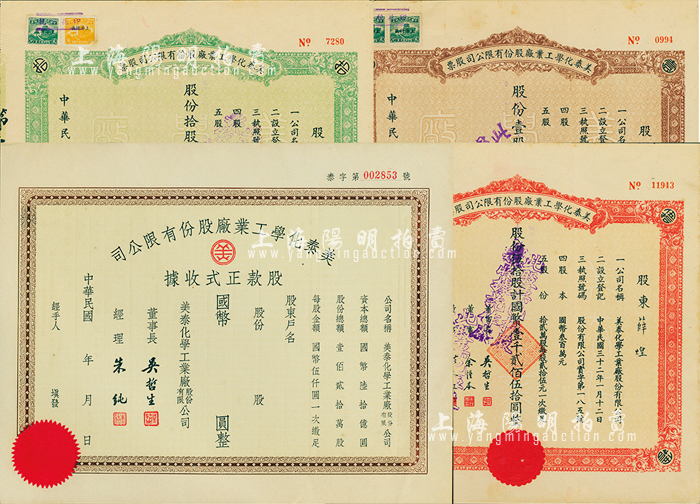 No 7280
美泰化學工業廠股份有限公司股票
股
一公司名
二設立登
三執照號
四股
五股
股份拾股
中華民
No 0994
美泰化學工業廠股份有限公司股票
股
一公司名
二設立登
三執照號
四股
五股
股份壹股
中華民
泰字第 002853 號
美泰化學工業廠股份有限公司
股款正式收據
公司名稱 美泰化學工業廠股份有限公司
資本總額 國幣陸拾億圓
股份總額 壹佰貳拾萬股
每股金額 國幣伍仟圓一次繳足
股東戶名
股份 股
國幣 圓整
美泰化學工業廠股份有限公司
董事長 吳哲生
經理 朱純
中華民國 年 月 日
經手人
填發
No 11943
美泰化學工業廠股份有限公司股
股東 薛
一公司名稱 美泰化學工業廠股份有限公司
二設立登記 中華民國三十二年一月十二日
三執照號碼 股份有限公司實字第一八五號
四股本 國幣叁百萬元
五股份 拾貳萬股每股貳拾五元一次繳足
股份 拾股計國幣壹千貳佰伍拾圓整
吳哲生
上海陽明拍賣
www.yangmingauction.com
上海陽明拍賣
www.yangmingauction.com
上海陽明拍賣
www.yangmingauction.com
上海陽明拍賣
www.yangmingauction.com